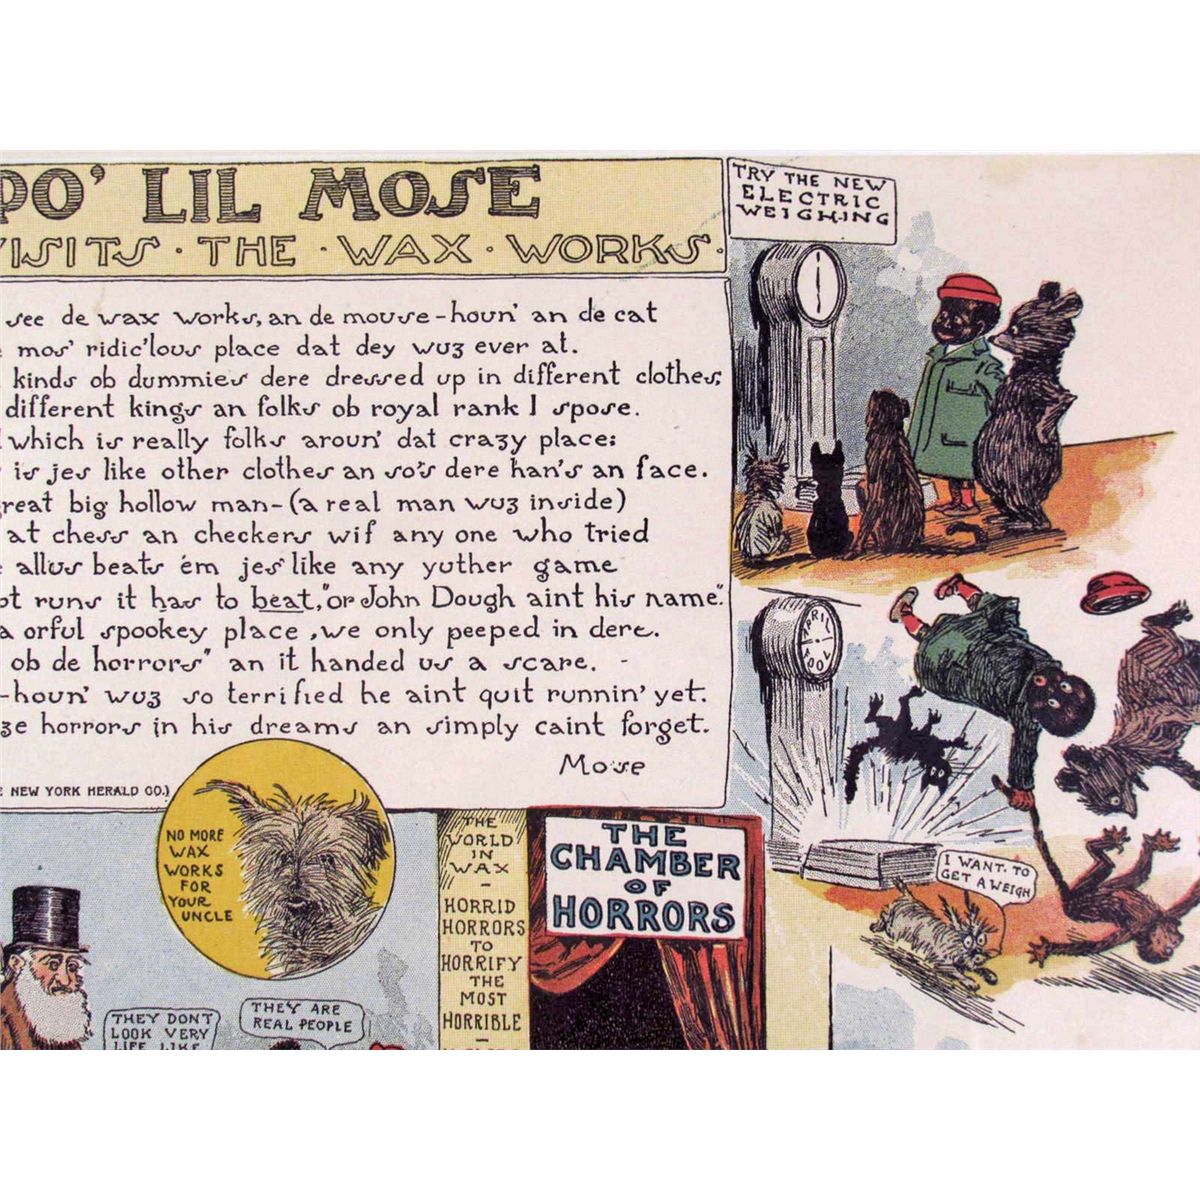 PO' LIL MOSE
VISITS · THE · WAX · WORKS ·
see de wax works, an de mouse-houn' an de cat
mos' ridic'lous place dat dey wuz ever at.
kinds ob dummies dere dressed up in different clothes;
different kings an folks ob royal rank I spose.
which is really folks aroun' dat crazy place;
is jes like other clothes an so's dere han's an face.
great big hollow man-(a real man wuz inside)
at chess an checkers wif any one who tried
allus beats 'em jes' like any yuther game
runs it has to beat," or John Dough aint his name".
a orful spookey place, we only peeped in dere.
ob de horrors" an it handed us a scare. -
-houn' wuz so terrified he aint quit runnin' yet.
horrors in his dreams an simply caint forget.
Mose
NEW YORK HERALD CO.)
TRY THE NEW
ELECTRIC
WEIGHING
APRIL
FOOL
I WANT. TO
GET A WEIGH
NO MORE
WAX
WORKS
FOR
YOUR
UNCLE
THEY DONT
LOOK VERY
LIFE LIKE
THEY ARE
REAL PEOPLE
THE
WORLD
IN
WAX
-
HORRID
HORRORS
TO
HORRIFY
THE
MOST
HORRIBLE
-
THE
CHAMBER
OF
HORRORS